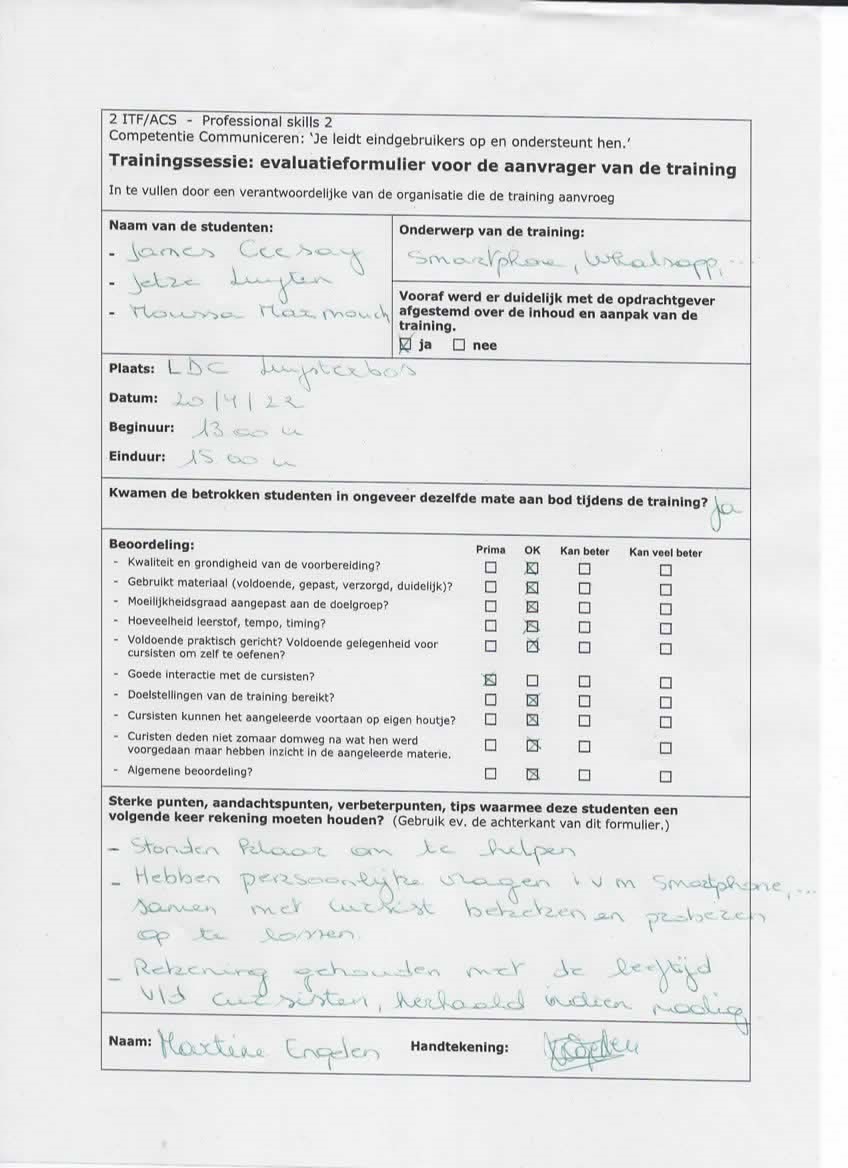 2 ITF/ACS - Professional skills 2
Competentie Communiceren: 'Je leidt eindgebruikers op en ondersteunt hen.'
Trainingssessie: evaluatieformulier voor de aanvrager van de training
In te vullen door een verantwoordelijke van de organisatie die de training aanvroeg
Naam van de studenten:
- James Ceesay
- Jetze Luyten
- Moussa Marmouch
Onderwerp van de training:
Smartphone, Whatsapp, ...
Vooraf werd er duidelijk met de opdrachtgever
afgestemd over de inhoud en aanpak van de
training.
☒ ja ☐ nee
Plaats: LDC Luysterbos
Datum: 20/4/22
Beginuur: 13 00 u
Einduur: 15 00 u
Kwamen de betrokken studenten in ongeveer dezelfde mate aan bod tijdens de training? Ja
Beoordeling: Prima OK Kan beter Kan veel beter
- Kwaliteit en grondigheid van de voorbereiding? ☐ ☒ ☐ ☐
- Gebruikt materiaal (voldoende, gepast, verzorgd, duidelijk)? ☐ ☒ ☐ ☐
- Moeilijkheidsgraad aangepast aan de doelgroep? ☐ ☒ ☐ ☐
- Hoeveelheid leerstof, tempo, timing? ☐ ☒ ☐ ☐
- Voldoende praktisch gericht? Voldoende gelegenheid voor
cursisten om zelf te oefenen? ☐ ☒ ☐ ☐
- Goede interactie met de cursisten? ☒ ☐ ☐ ☐
- Doelstellingen van de training bereikt? ☐ ☒ ☐ ☐
- Cursisten kunnen het aangeleerde voortaan op eigen houtje? ☐ ☒ ☐ ☐
- Curisten deden niet zomaar domweg na wat hen werd
voorgedaan maar hebben inzicht in de aangeleerde materie. ☐ ☒ ☐ ☐
- Algemene beoordeling? ☐ ☒ ☐ ☐
Sterke punten, aandachtspunten, verbeterpunten, tips waarmee deze studenten een
volgende keer rekening moeten houden? (Gebruik ev. de achterkant van dit formulier.)
- Stonden klaar om te helpen
- Hebben persoonlijke vragen i v m smartphone, ...
samen met cursist bekeken en proberen
op te lossen.
- Rekening gehouden met de leeftijd
v/d cursisten, herhaald indien nodig
Naam: Martine Engelen Handtekening: